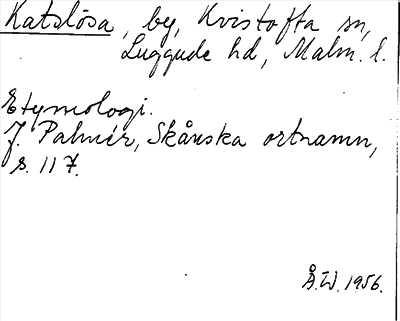 Katslösa, by, Kvistofta sn,
Luggude hd, Malm. l.
Etymologi.
J. Palmér, Skånska ortnamn,
s. 117.
Å.W. 1956.